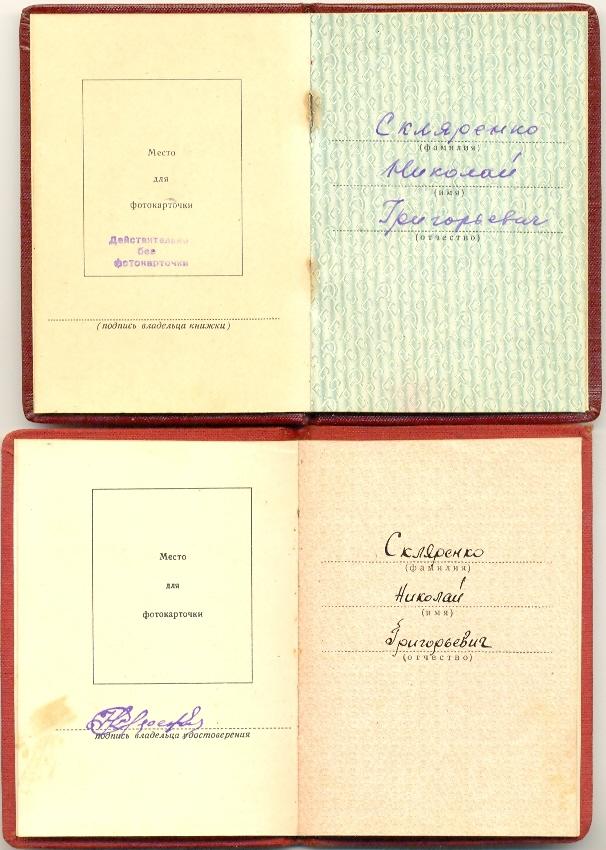 Место
для
фотокарточки
Действительно
без
фотокарточки
(подпись владельца книжки)
Скляренко
(фамилия)
Николай
(имя)
Григорьевич
(отчество)
Место
для
фотокарточки
подпись владельца удостоверения
Скляренко
(фамилия)
Николай
(имя)
Григорьевич
(отчество)